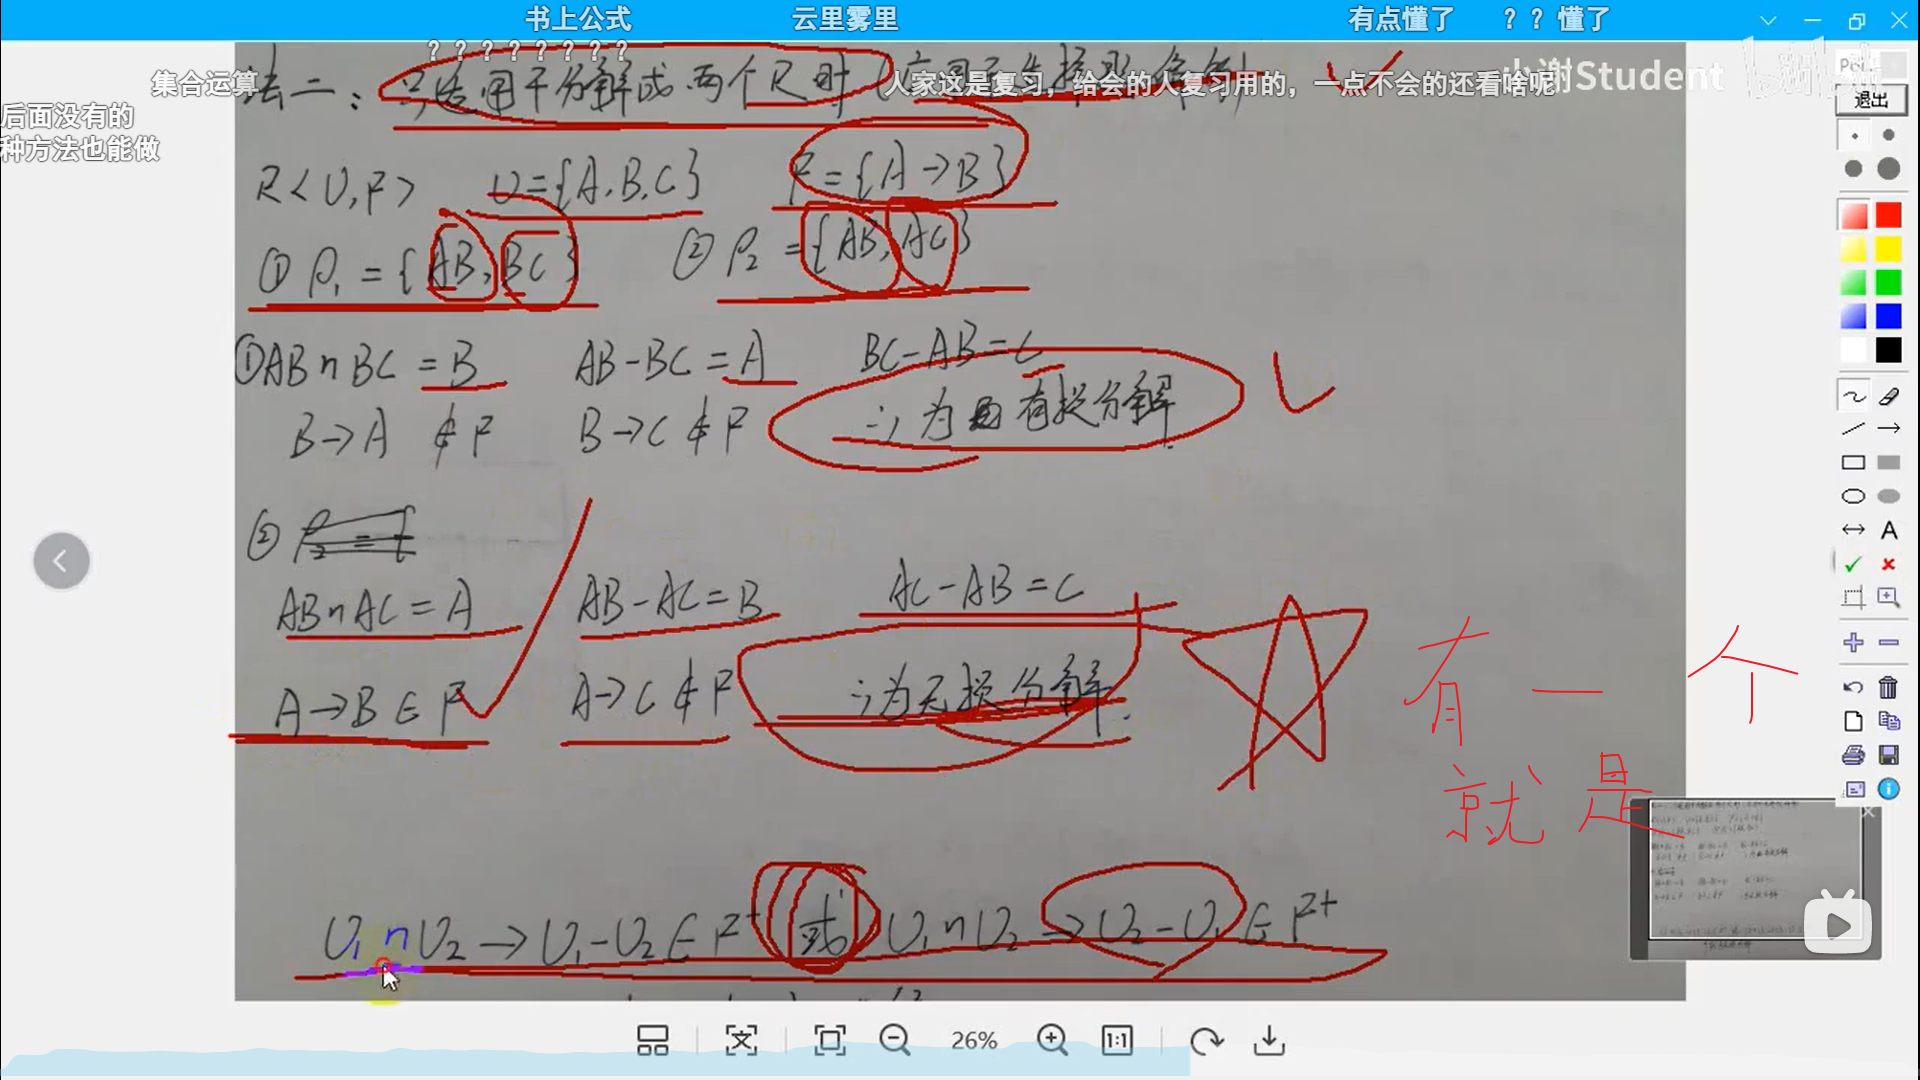 书上公式 云里雾里 有点懂了 ？？懂了
？？？？？？？？
集合运算
法二：只适用于分解成两个R时
人家这是复习，给会的人复习用的，一点不会的还看啥呢
小谢Student
bilibili
退出
后面没有的
种方法也能做
R<U,F> U={A,B,C} F={A→B}
① ρ₁={AB,BC} ② ρ₂={AB,AC}
①AB∩BC=B AB-BC=A BC-AB=C
B→A ∉F B→C∉F ∴为有损分解
②
AB∩AC=A AB-AC=B AC-AB=C
A→B∈F A→C∉F ∴为无损分解.
有一个
就是
U₁∩U₂→U₁-U₂∈F⁺ 或 U₁∩U₂→U₂-U₁∈F⁺
26%
1:1